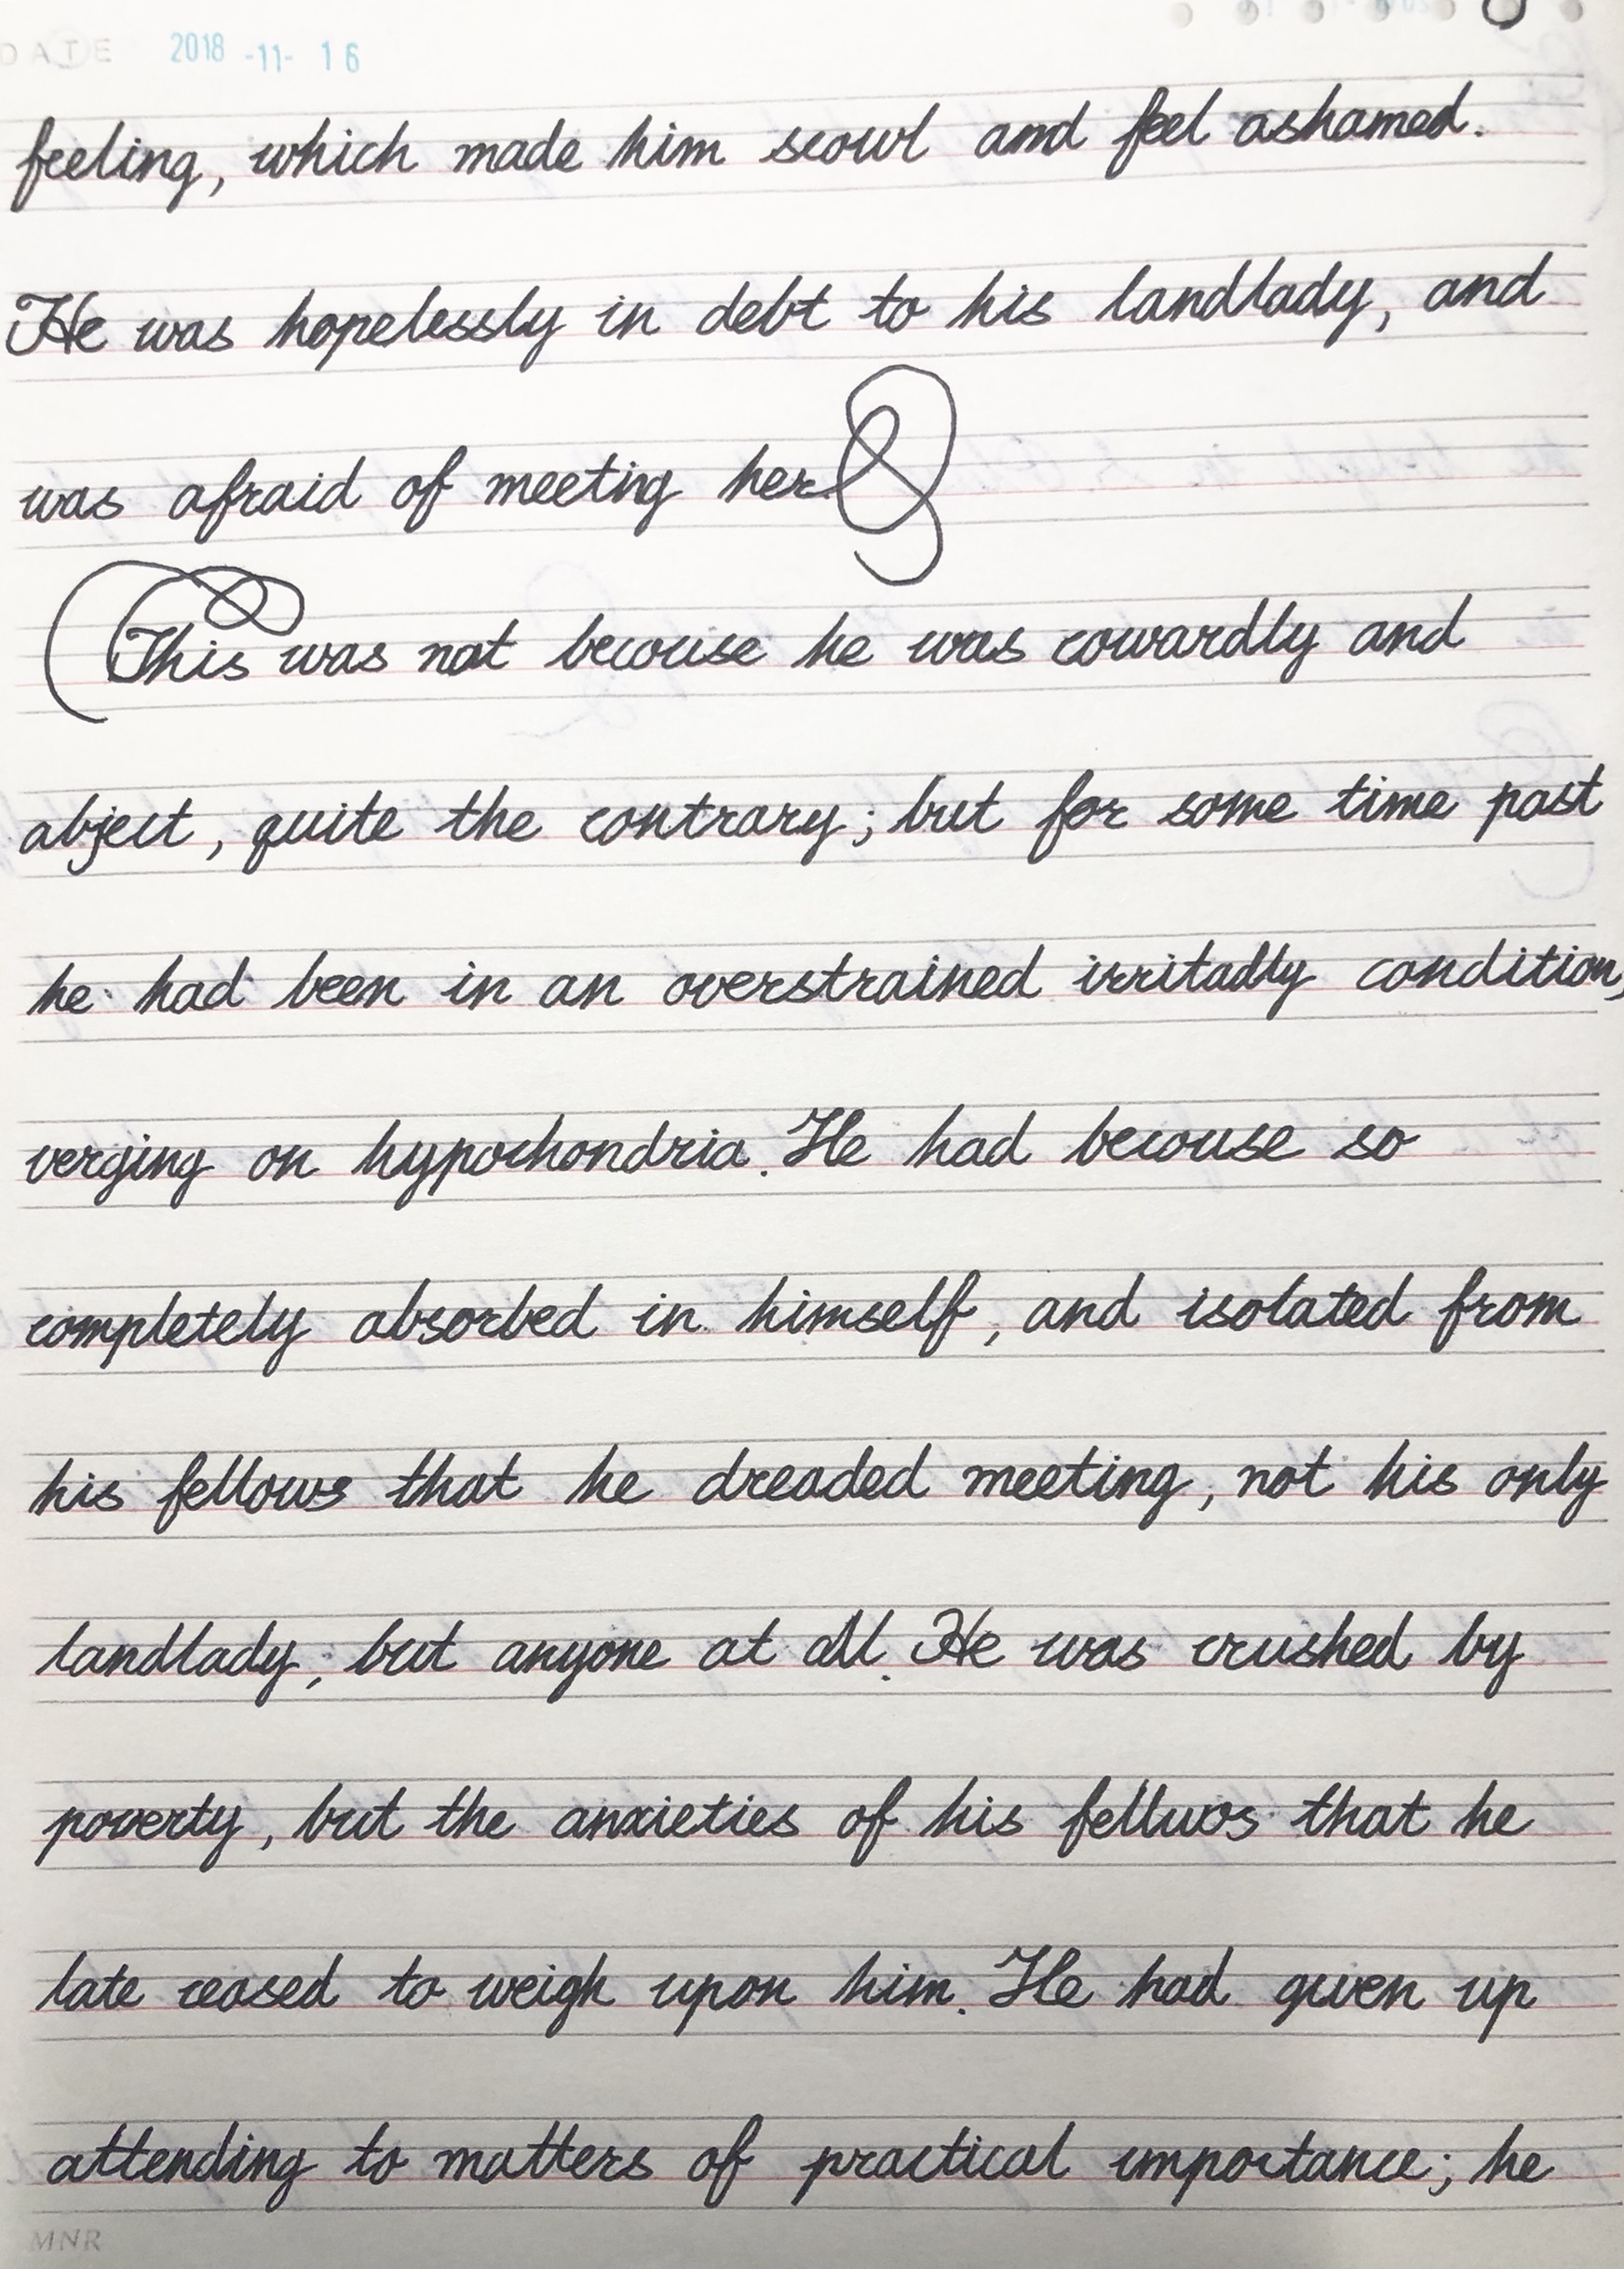 DATE 2018-11-16
feeling, which made him scowl and feel ashamed.
He was hopelessly in debt to his landlady, and
was afraid of meeting her.
This was not becouse he was cowardly and
abject, quite the contrary; but for some time past
he had been in an overstrained irritadly condition,
verging on hypochondria. He had becouse so
completely absorbed in himself, and isolated from
his fellows that he dreaded meeting, not his only
landlady, but anyone at all. He was crushed by
poverty, but the anxieties of his fellwos that he
late ceased to weigh upon him. He had given up
attending to matters of practical importance; he
MNR